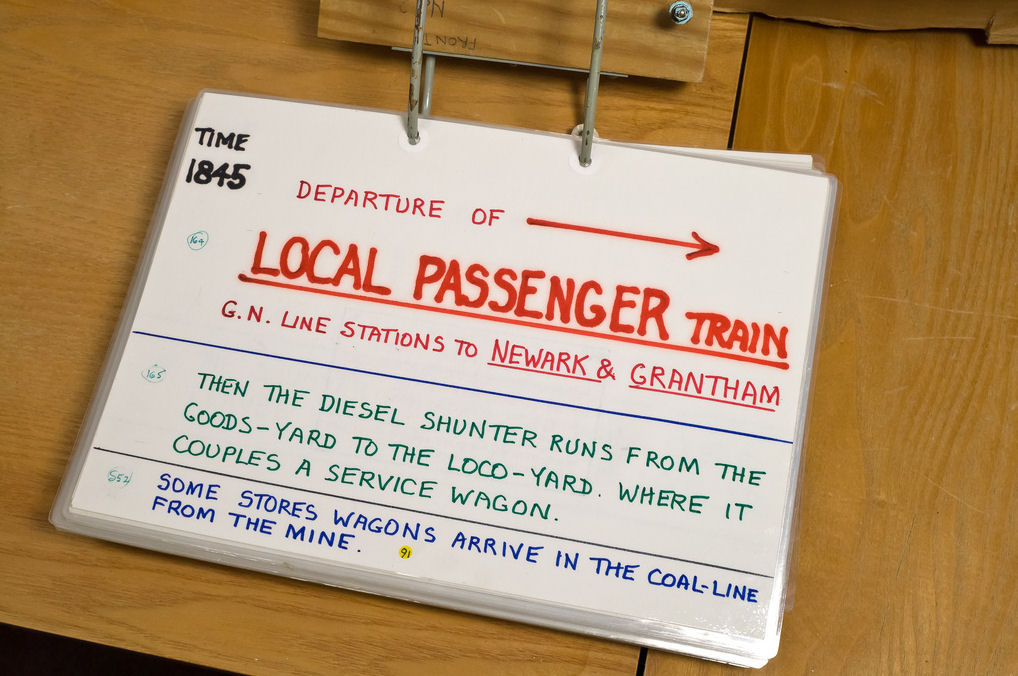 FRONT
TIME
1845
DEPARTURE OF
164
LOCAL PASSENGER TRAIN
G.N. LINE STATIONS TO NEWARK & GRANTHAM
165
THEN THE DIESEL SHUNTER RUNS FROM THE
GOODS-YARD TO THE LOCO-YARD. WHERE IT
COUPLES A SERVICE WAGON.
SOME STORES WAGONS ARRIVE IN THE COAL-LINE
FROM THE MINE.
91